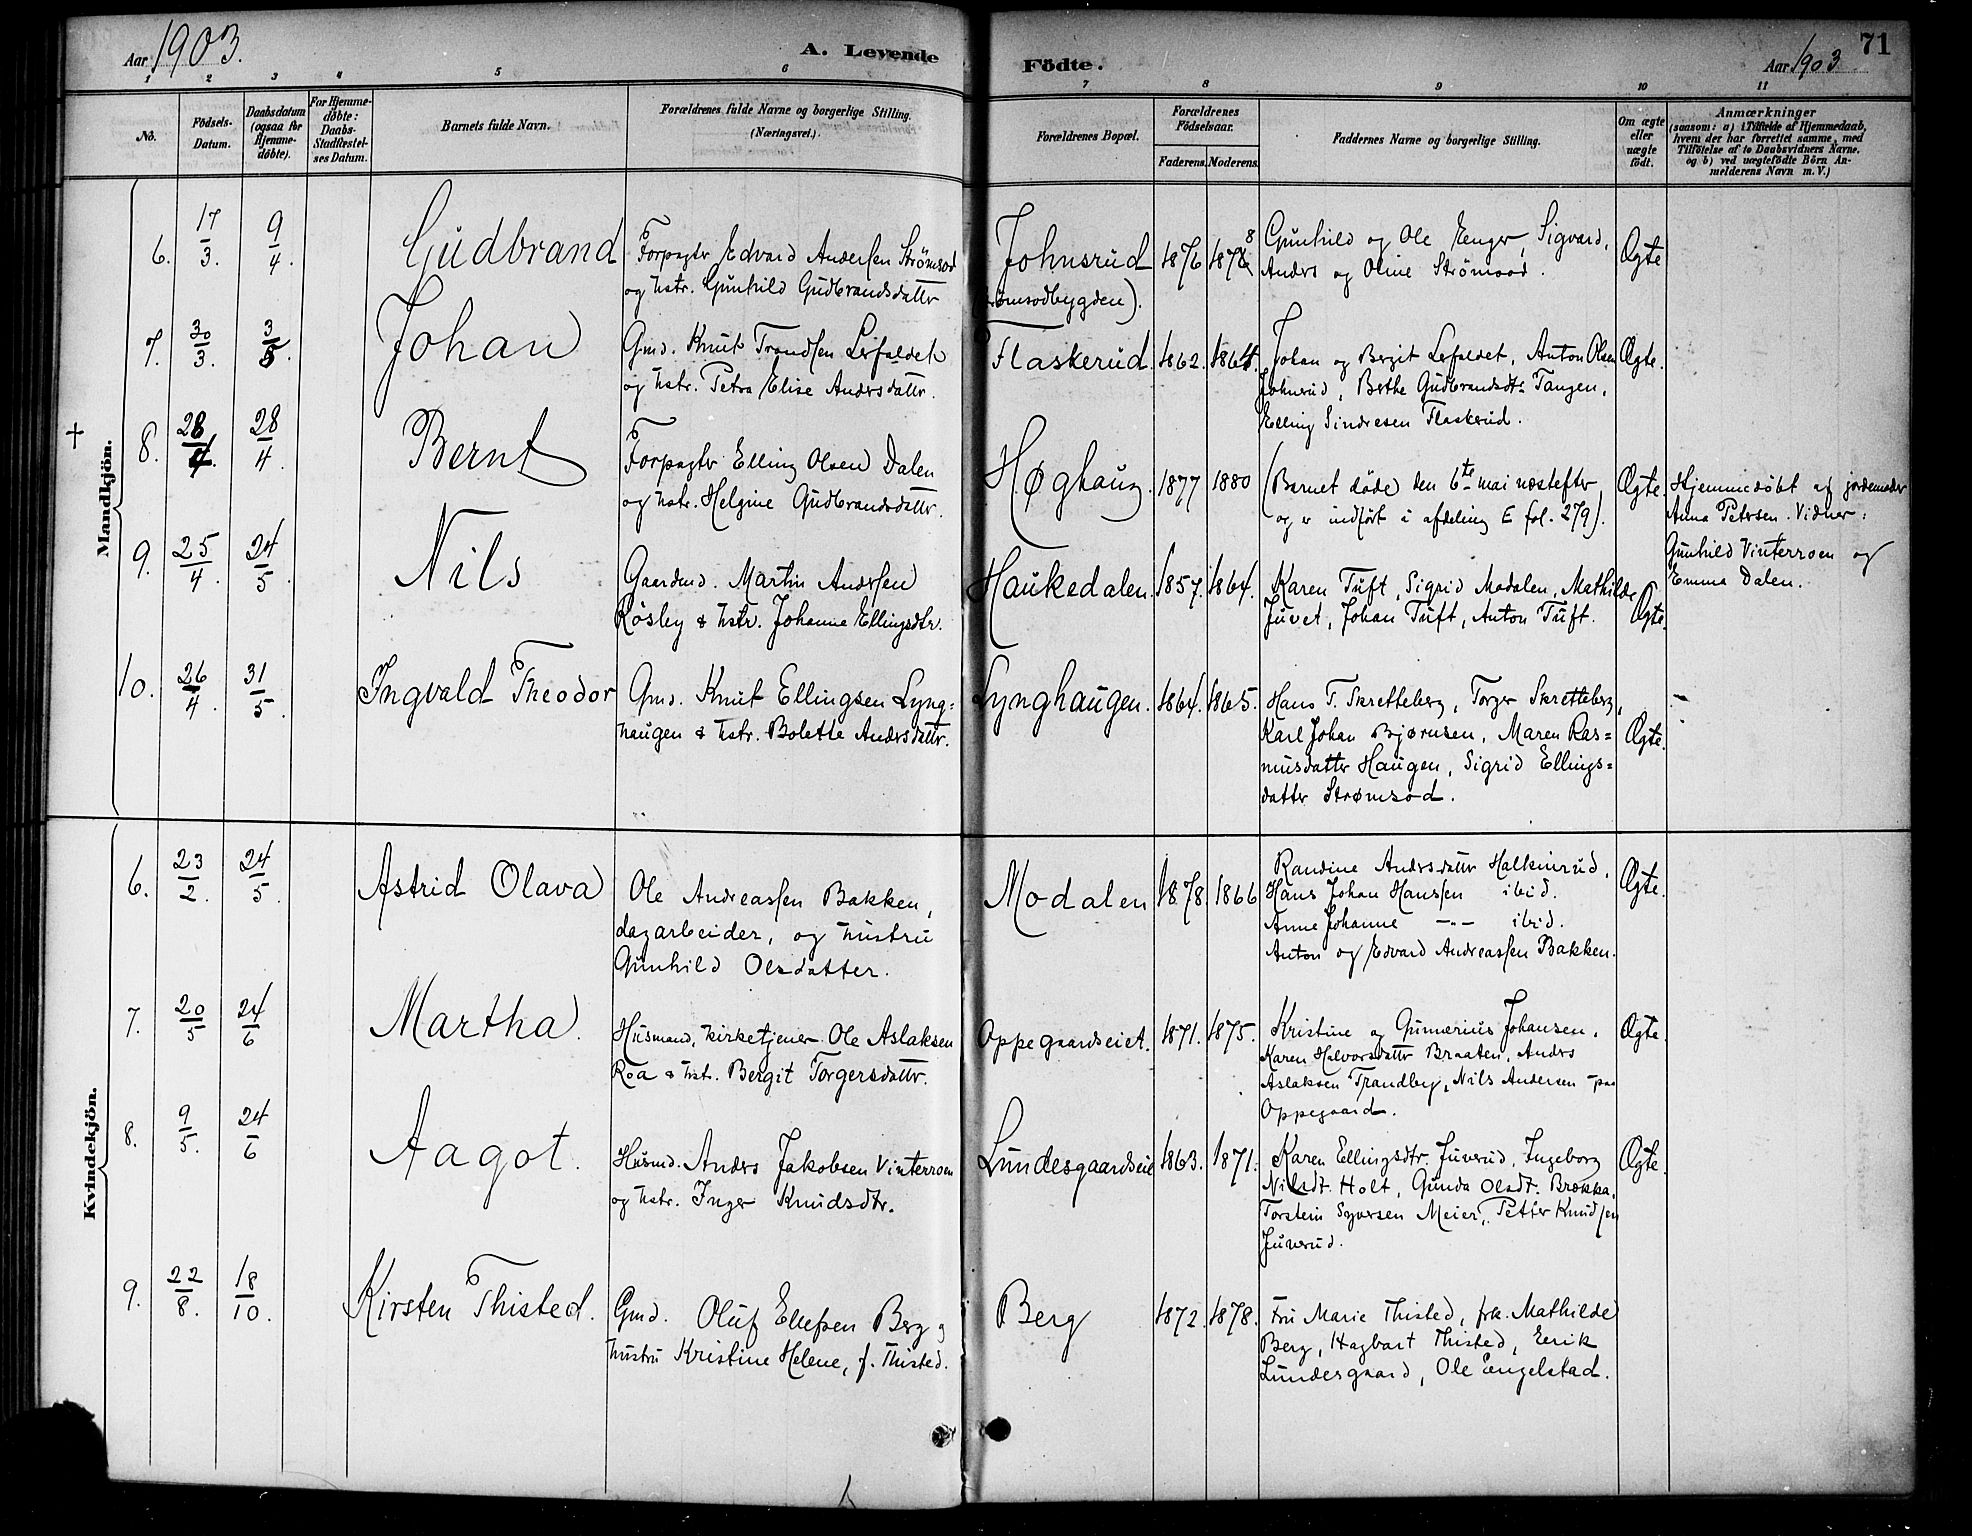 Aar 1903.
A. Levende
Födte.
Aar 1903
71
1 2 3 4 5 6 7 8 9 10 11
No.
Födsels-
Datum.
Daabsdatum
(ogsaa for
Hjemme-
döbte).
For Hjemme-
döbte:
Daabs-
Stadfæstel-
ses Datum.
Barnets fulde Navn.
Forældrenes fulde Navne og borgerlige Stilling.
(Næringsvei).
Forældrenes Bopæl.
Forældrenes
Födselsaar.
Faderens. Moderens.
Faddernes Navne og borgerlige Stilling.
Om ægte
eller
uægte
födt.
Anmærkninger
(saasom: a) i Tilfælde af Hjemmedaab,
hvem der har forrettet samme, med
Tilföielse af to Daabsvidners Navne.
og b) ved uægtefödte Börn An-
melderens Navn m. V.)
Mandkjön.
6. 17/3. 9/4. Gudbrand
Forpagter Edvard Andersen Strömsod
og hstr. Gunhild Gudbrandsdattr
Johnsrud
ömsodbygden).
1876 1878
Gunhild og Ole Enger, Sigvard,
Anders og Oline Strömsod.
Ægte
7. 30/3. 3/5. Johan
Gmd. Knut Trondsen Lerfaldet
og hstr. Petra Elise Andersdattr.
Flaskerud. 1862. 1864.
Johan og Bergit Lerfaldet, Anton Olsen
Johnsrud, Berthe Gudbrandsdtr Tangen,
Elling Sindresen Flaskerud.
Ægte.
† 8. 28/4. 28/4. Bernt
Forpagter Elling Olsen Dalen
og hstr. Helgine Gudbrandsdattr.
Høghaug. 1877 1880
(Barnet døde den 6te mai næstefter,
og er indført i afdeling E fol. 279).
Ægte.
Hjemmedøbt af jordemoder
Anna Petersen. Vidner:
Gunhild Vinterroen og
Emma Dalen.
9. 25/4. 24/5. Nils
Gaardmd. Martin Andersen
Rösley & hstr. Johanne Ellingsdtr.
Haukedalen. 1857. 1864.
Karen Tuft, Sigrid Modalen, Mathilde
Juvet, Johan Tuft, Anton Tuft.
Ægte.
10. 26/4. 31/5. Ingvald Theodor
Gmd. Knut Ellingsen Lyng=
haugen & hstr. Bolette Andersdattr.
Lynghaugen. 1864. 1865.
Hans T. Skretteberg, Torger Skretteberg,
Karl Johan Bjørnsen, Maren Ras=
musdatter Haugen, Sigrid Ellings=
datter Strømsod.
Ægte.
Kvindekjön.
6. 23/2. 24/5. Astrid Olava
Ole Andreassen Bakken,
dagarbeider, og hustru
Gunhild Olsdatter.
Modalen 1878. 1866
Randine Andersdattr Halkinrud,
Hans Johan Hanssen ibid.
Anne Johanne -"- ibid.
Anton og Edvard Andreassen Bakken.
Ægte.
7. 20/5 24/6 Martha.
Husmand, kirketjener Ole Aslaksen
Roa & hstr. Bergit Torgersdattr.
Oppegaardseiet. 1871. 1875.
Kristine og Gunnerius Johansen,
Karen Halvorsdattr Braaten, Anders
Aslaksen Trandby, Nils Andersen paa
Oppegaard.
Ægte.
8. 9/5. 24/6 Aagot.
Husmd. Anders Jakobsen Vinterroen
og hstr. Inger Knudsdtr.
Lundesgaardseie 1863. 1871.
Karen Ellingsdtr. Juverud, Ingeborg
Nilsdt. Holt, Gunda Olsdt. Brække,
Torstein Syversen Meier, Petter Knudsen
Juverud.
Ægte.
9. 22/8. 18/10. Kirsten Thisted.
Gmd. Oluf Ellefsen Berg og
hustru Kristine Helene, f. Thisted.
Berg 1872. 1878.
Fru Marie Thisted, frk. Mathilde
Berg, Hagbart Thisted, Eerik
Lundesgaard, Ole Engelstad.